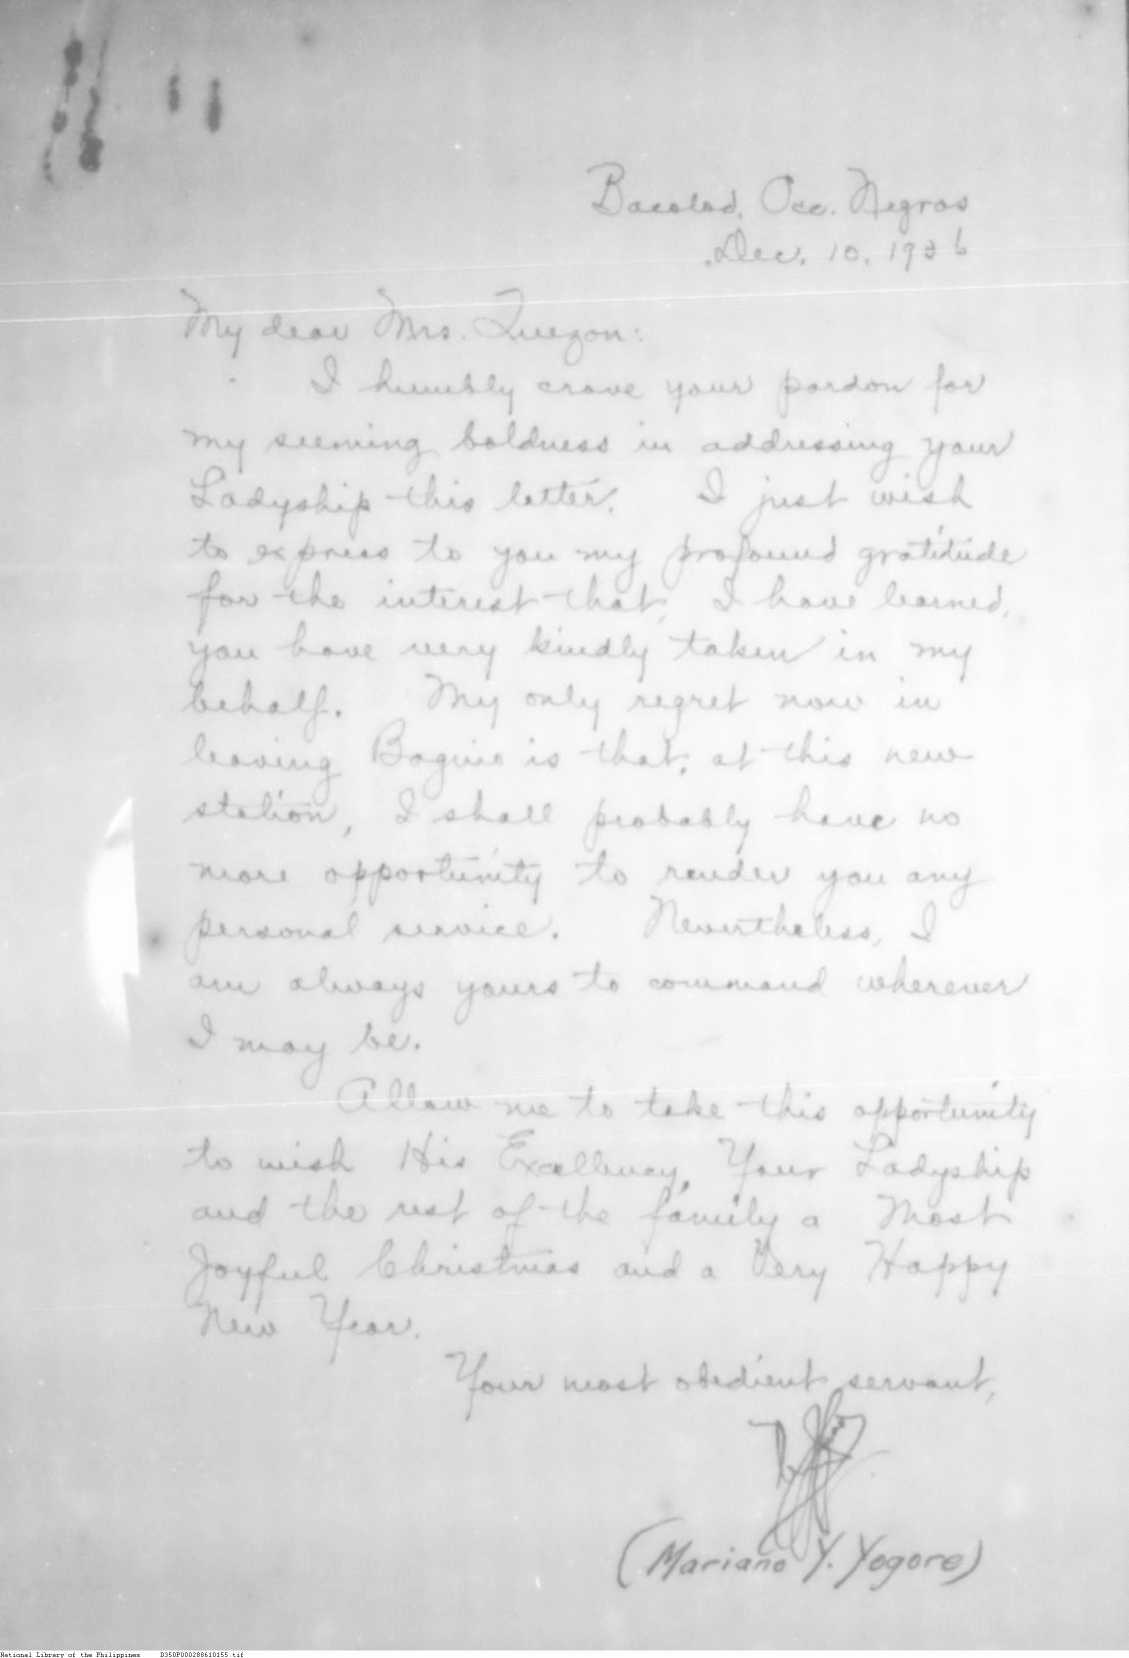 Bacolod, Occ. Negros
Dec. 10, 1936
My dear Mrs. Quezon:
I humbly crave your pardon for
my seeming boldness in addressing your
Ladyship this letter. I just wish
to express to you my profound gratitude
for the interest that, I have learned,
you have very kindly taken in my
behalf. My only regret now in
leaving Baguio is that, at this new
station, I shall probably have no
more opportunity to render you any
personal service. Nevertheless, I
am always yours to command wherever
I may be.
Allow me to take this opportunity
to wish His Excellency, Your Ladyship
and the rest of the family a Most
Joyful Christmas and a Very Happy
New Year.
Your most obedient servant,
(Mariano Y. Yogore)
National Library of the Philippines D350P000288610155.tif